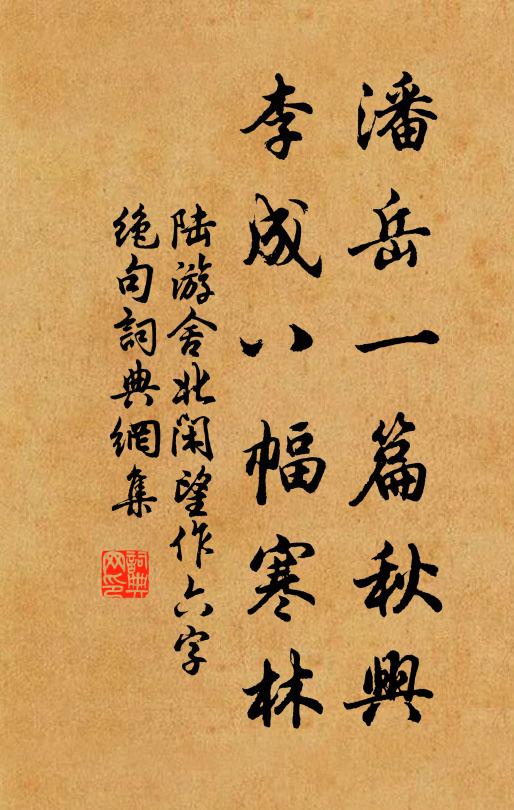 潘岳一篇秋興
李成八幅寒林
陆游舍北閑望作六字
絕句詞典網集
詞典网印